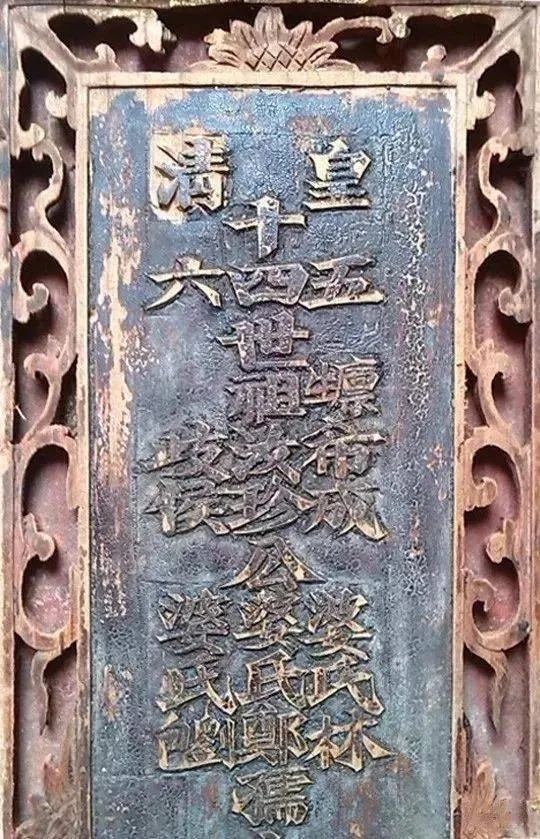 皇五希成婆氏林
十四世祖汝珍公婆氏鄭孺
清六婆氏